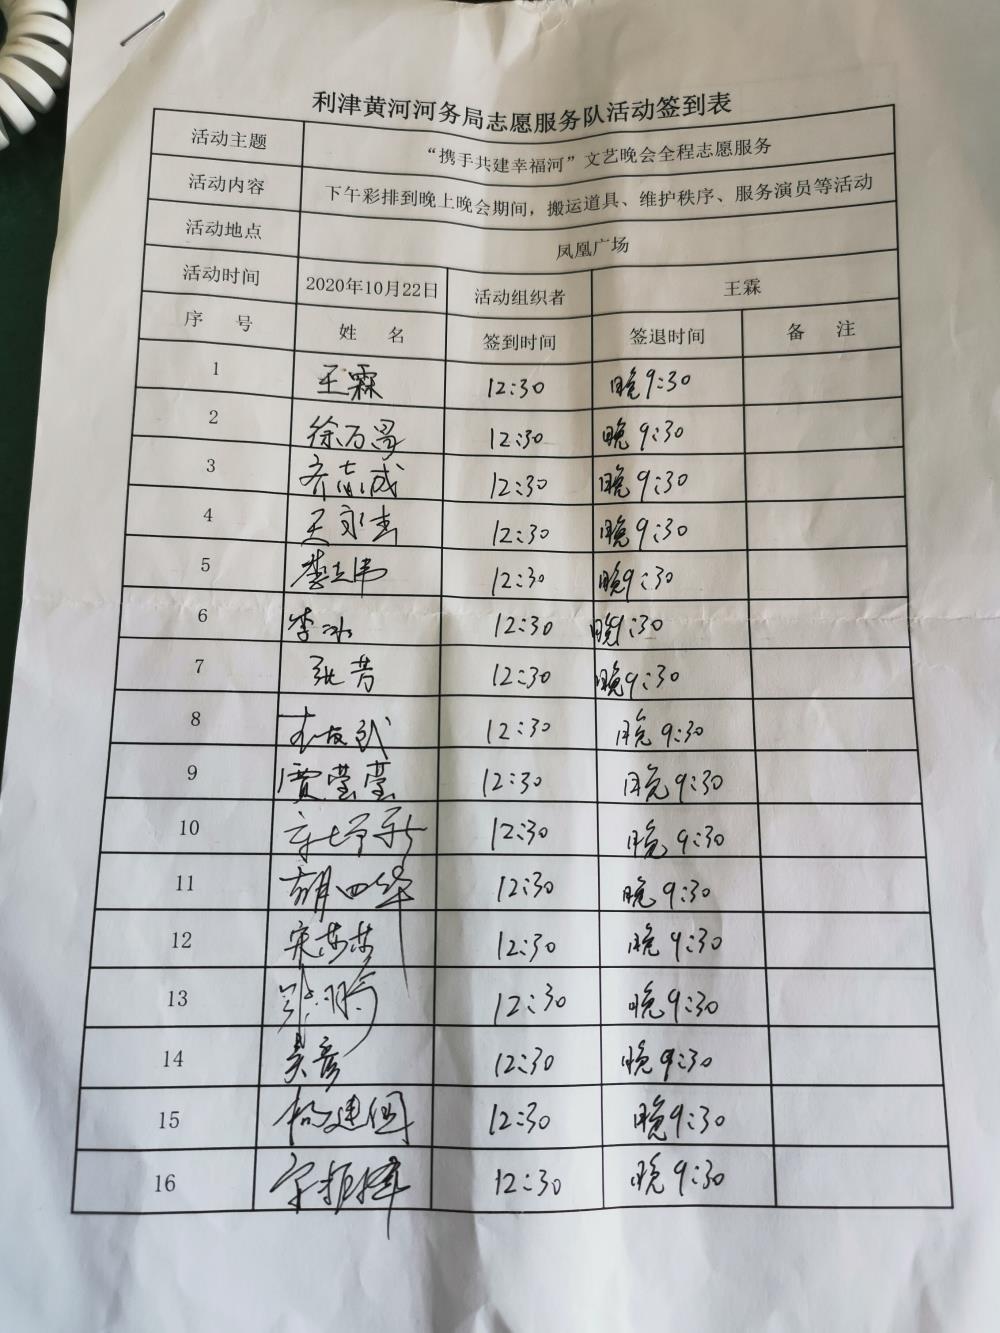 利津黄河河务局志愿服务队活动签到表
活动主题 “携手共建幸福河”文艺晚会全程志愿服务
活动内容 下午彩排到晚上晚会期间，搬运道具、维护秩序、服务演员等活动
活动地点 凤凰广场
活动时间 2020年10月22日 活动组织者 王霖
序 号 姓 名 签到时间 签退时间 备 注
1 王霖 12:30 晚9:30
2 徐万昌 12:30 晚9:30
3 齐志成 12:30 晚9:30
4 王永杰 12:30 晚9:30
5 李立伟 12:30 晚9:30
6 李冰 12:30 晚9:30
7 张芳 12:30 晚9:30
8 12:30 晚9:30
9 贾莹莹 12:30 晚9:30
10 12:30 晚9:30
11 胡四华 12:30 晚9:30
12 宋莎莎 12:30 晚9:30
13 12:30 晚9:30
14 吴彦 12:30 晚9:30
15 杨建国 12:30 晚9:30
16 12:30 晚9:30